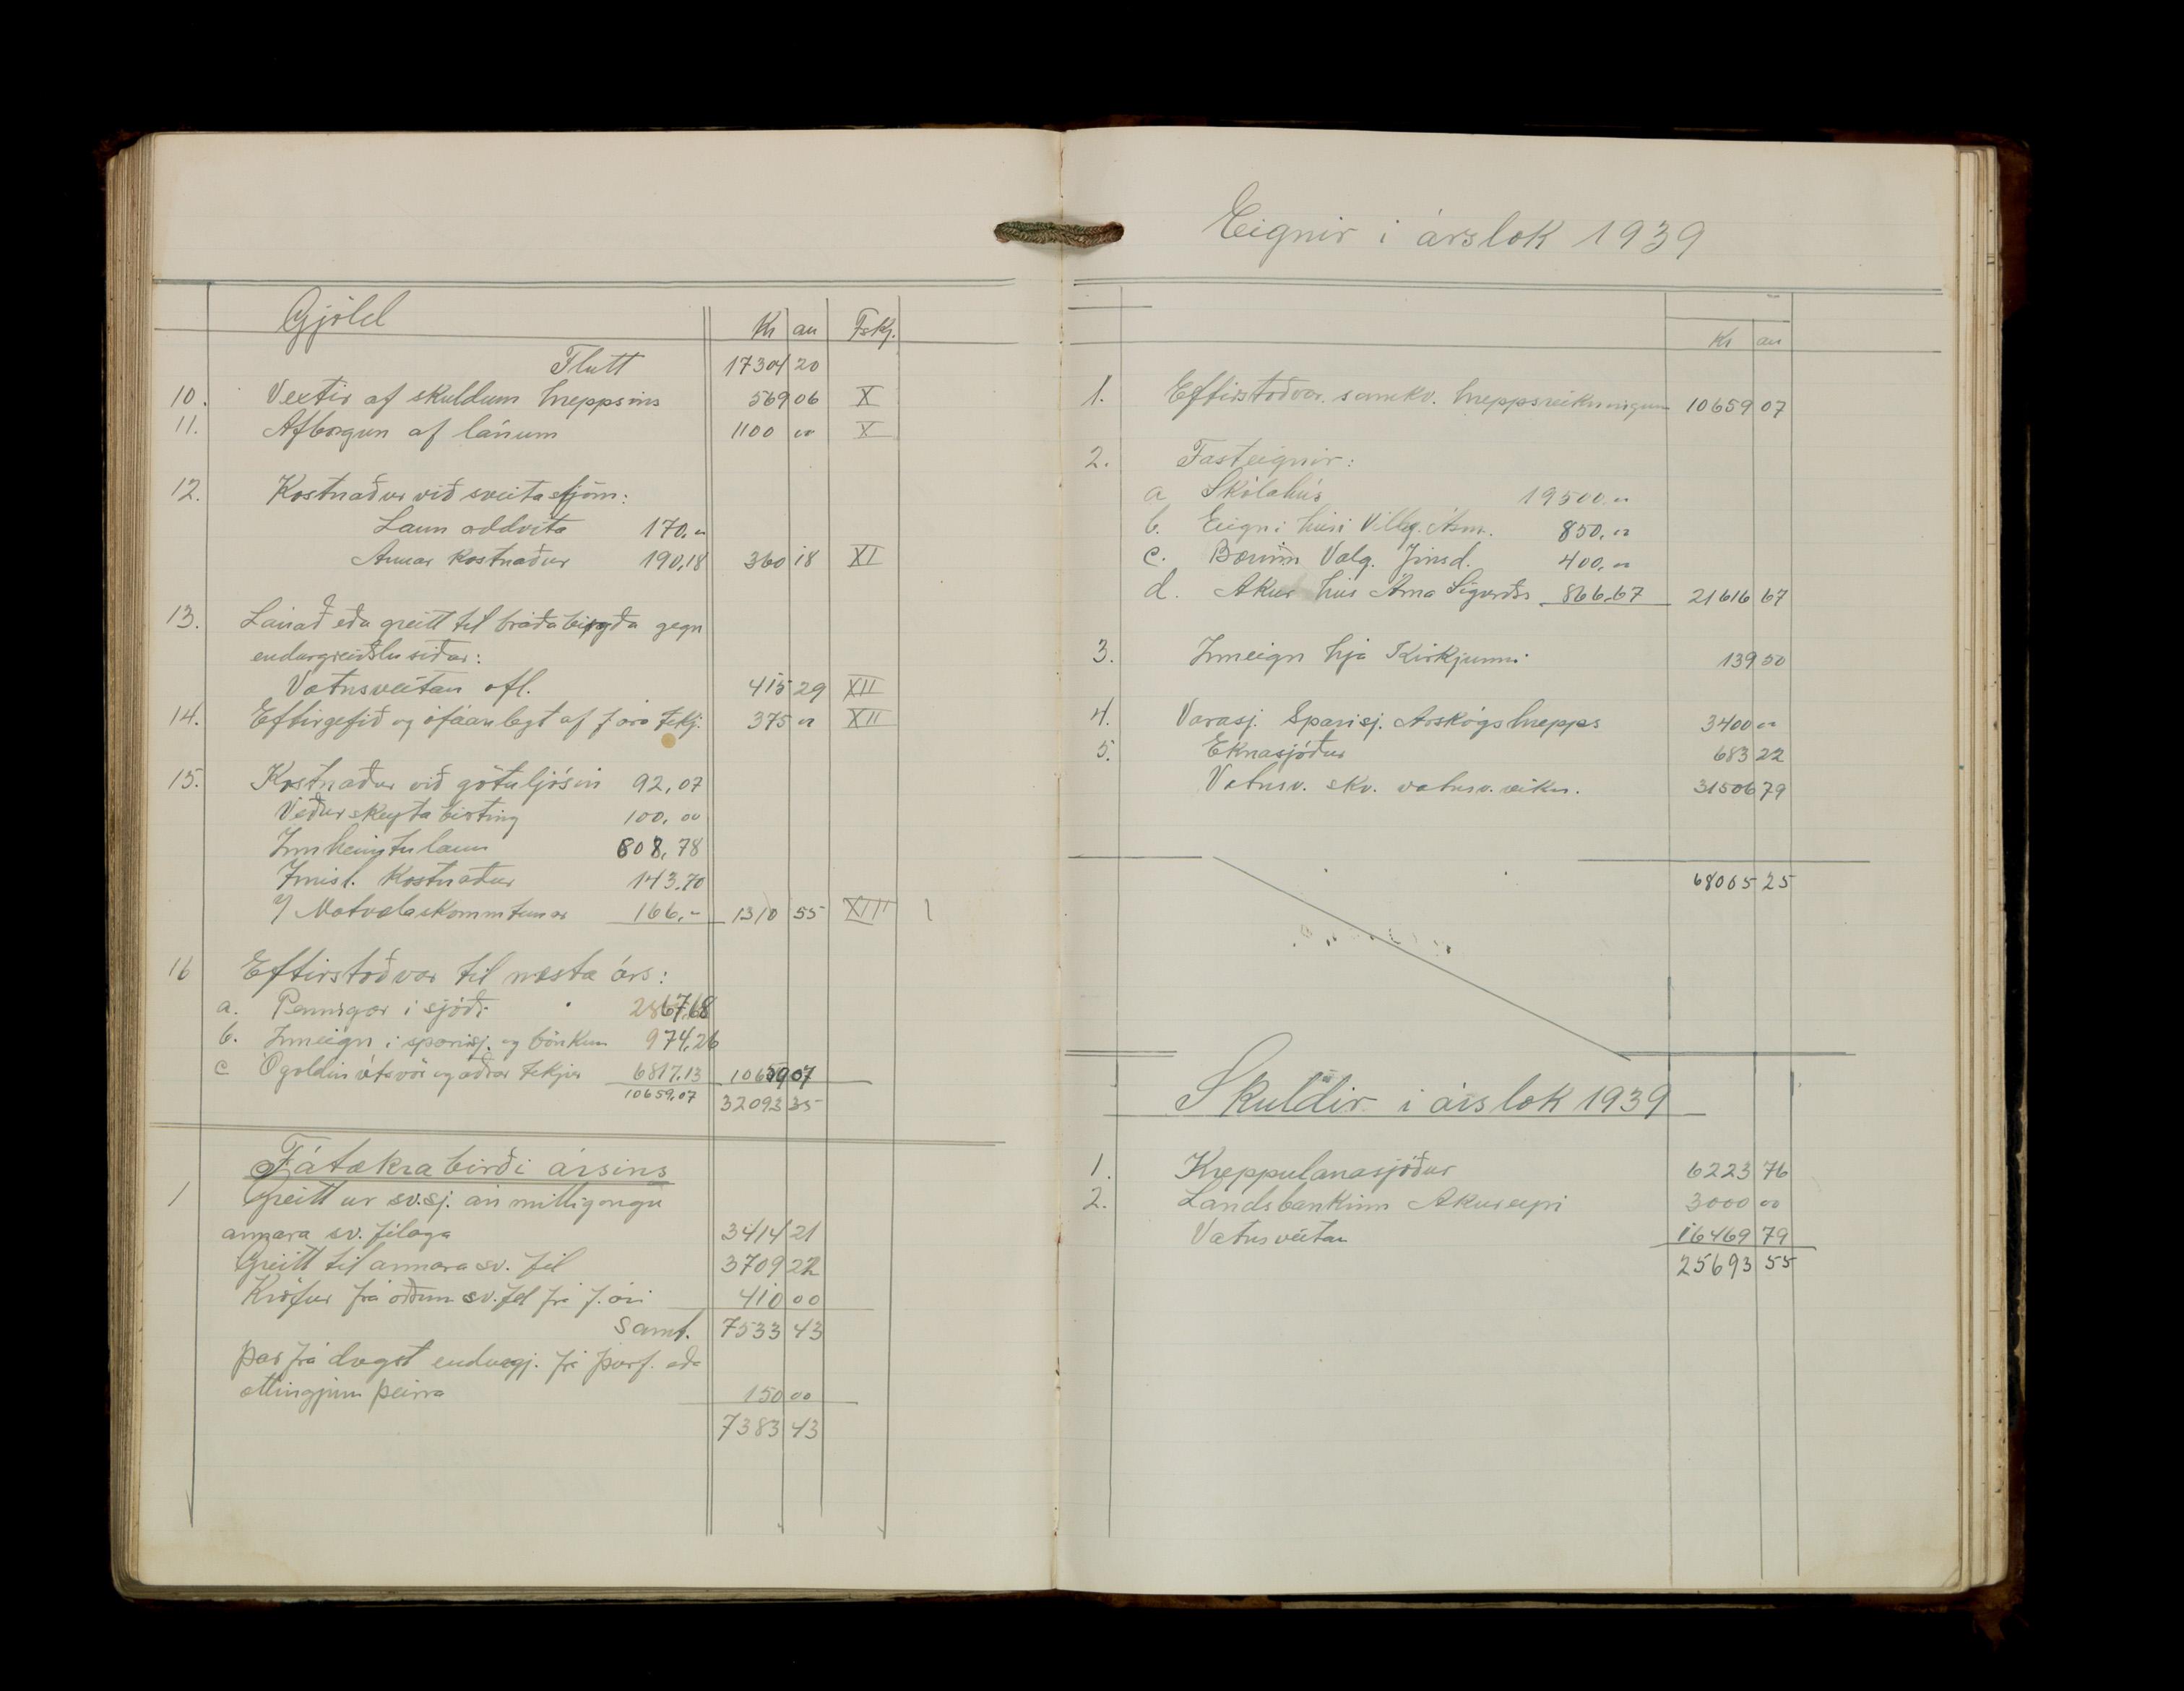 Gjöld Kr au Fskj.
Flutt 17304 20
10. Vextir af skuldum hreppsins 569 06 X
11. Afborgun af lánum 1100 00 X
12. Kostnaður við sveitastjórn:
Laun oddvita 170,00
Annar kostnaður 190,18 360 18 XI
13. Lánað eða greitt til bráðabirgða gegn
endurgreiðslu síðar:
Vatnsveitan ofl. 415 29 XII
14. Eftirgefið og ófáanlegt af f. árs tekj. 375 00 XII
15. Kostnaður við götuljósin 92,07
Veðurskeyta birting 100,00
Innheimtulaun 808,78
Ýmisl. kostnaður 143,70
Matvælaskommtunar 166,- 1310 55 XIII
16 Eftirstöðvar til næsta árs:
a. Peningar í sjóði 2867,68
b. Inneign í sparisj. og bönkum 974,26
c Ógoldin útsvör og aðrar tekjur 6817,13 10659 07
10659,07 32093 35
Fátækrabirði ársins
1 Greitt úr sv.sj. án milligöngu
annara sv. félaga 3414 21
Greitt til annara sv. fél 3709 22
Kröfur frá öðrum sv. fél frá f. ári 410 00
Samt. 7533 43
Þar frá dregst endurgj. frá þurf. eða
ættingjum þeirra 150 00
7383 43
Eignir í árslok 1939
Kr au
1. Eftirstöðvar samkv. hreppsreikningum 10659 07
2. Fasteignir:
a Skólahús 19500,00
b. Eign í húsi Vilhg. Ásm. 850,00
c. Valg. 400,00
d. Akur hús Árna Sigurðss 866,67 21616 67
3. Inneign hjá Kirkjunni 139 50
4. Varasj. Sparisj. Árskógshrepps 3400 00
5. Eknasjóður 683 22
Vatnsv. skv. vatnsv. reikn. 31506 79
68065 25
Skuldir í árslok 1939
1. Kreppulánasjóður 6223 76
2. Landsbankinn Akureyri 3000 00
Vatnsveitan 16469 79
25693 55